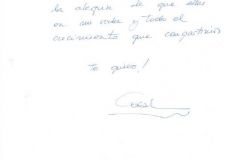 la alegría de que estés
en mi vida y todo el
crecimiento que compartimos
te quiero!